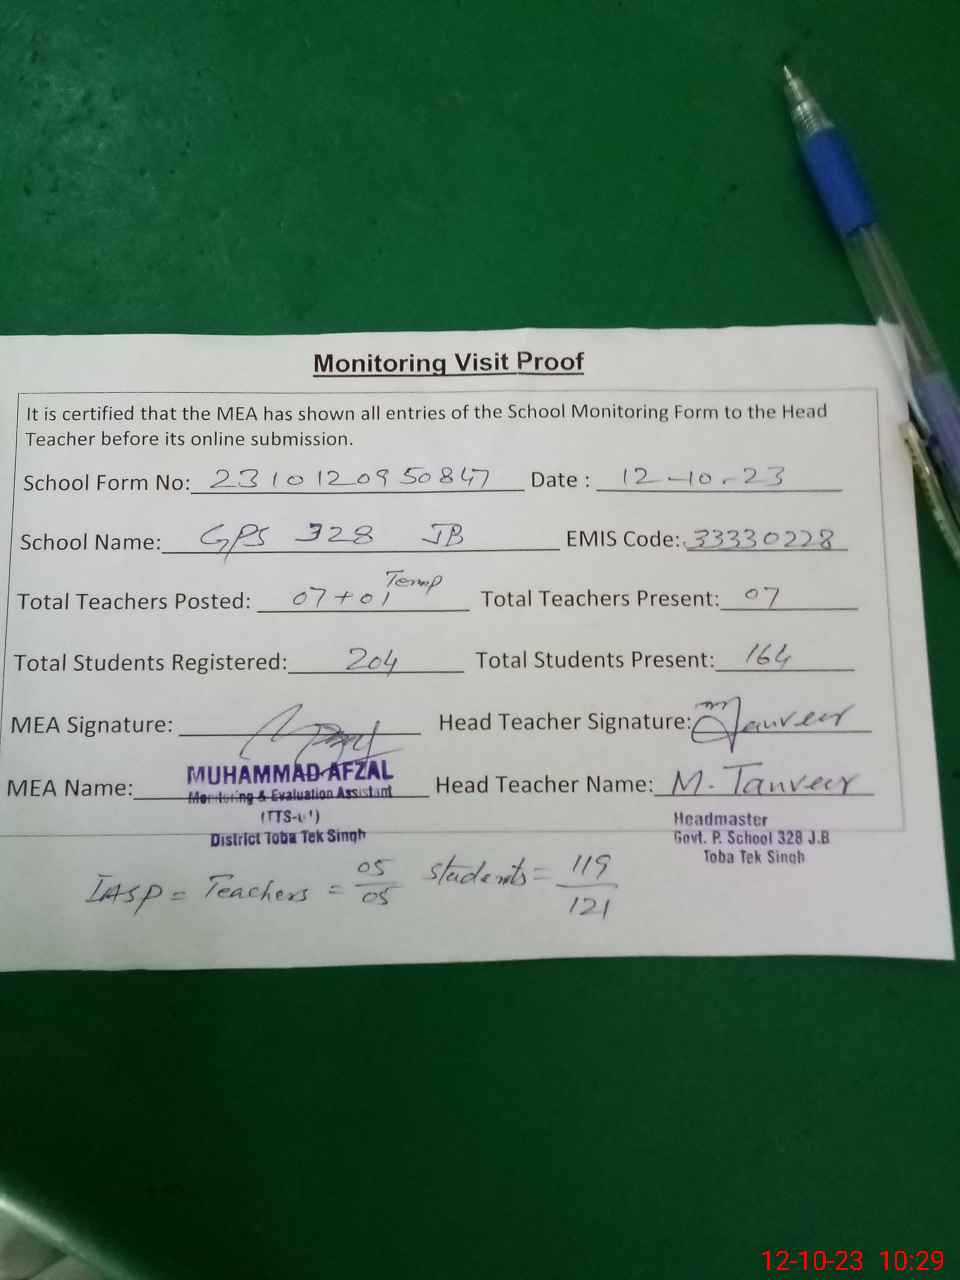 Monitoring Visit Proof
It is certified that the MEA has shown all entries of the School Monitoring Form to the Head
Teacher before its online submission.
School Form No: 2310120950847 Date : 12-10-23
School Name: GPS 328 JB EMIS Code: 33330228
Total Teachers Posted: 07+01 Temp Total Teachers Present: 07
Total Students Registered: 204 Total Students Present: 164
MEA Signature: Head Teacher Signature: Tanveer
MEA Name: MUHAMMAD AFZAL Head Teacher Name: M. Tanveer
Monitoring & Evaluation Assistant
District Toba Tek Singh
Headmaster
Govt. P. School 328 J.B
Toba Tek Singh
IASP = Teachers = 05/05 students = 119/121
12-10-23 10:29